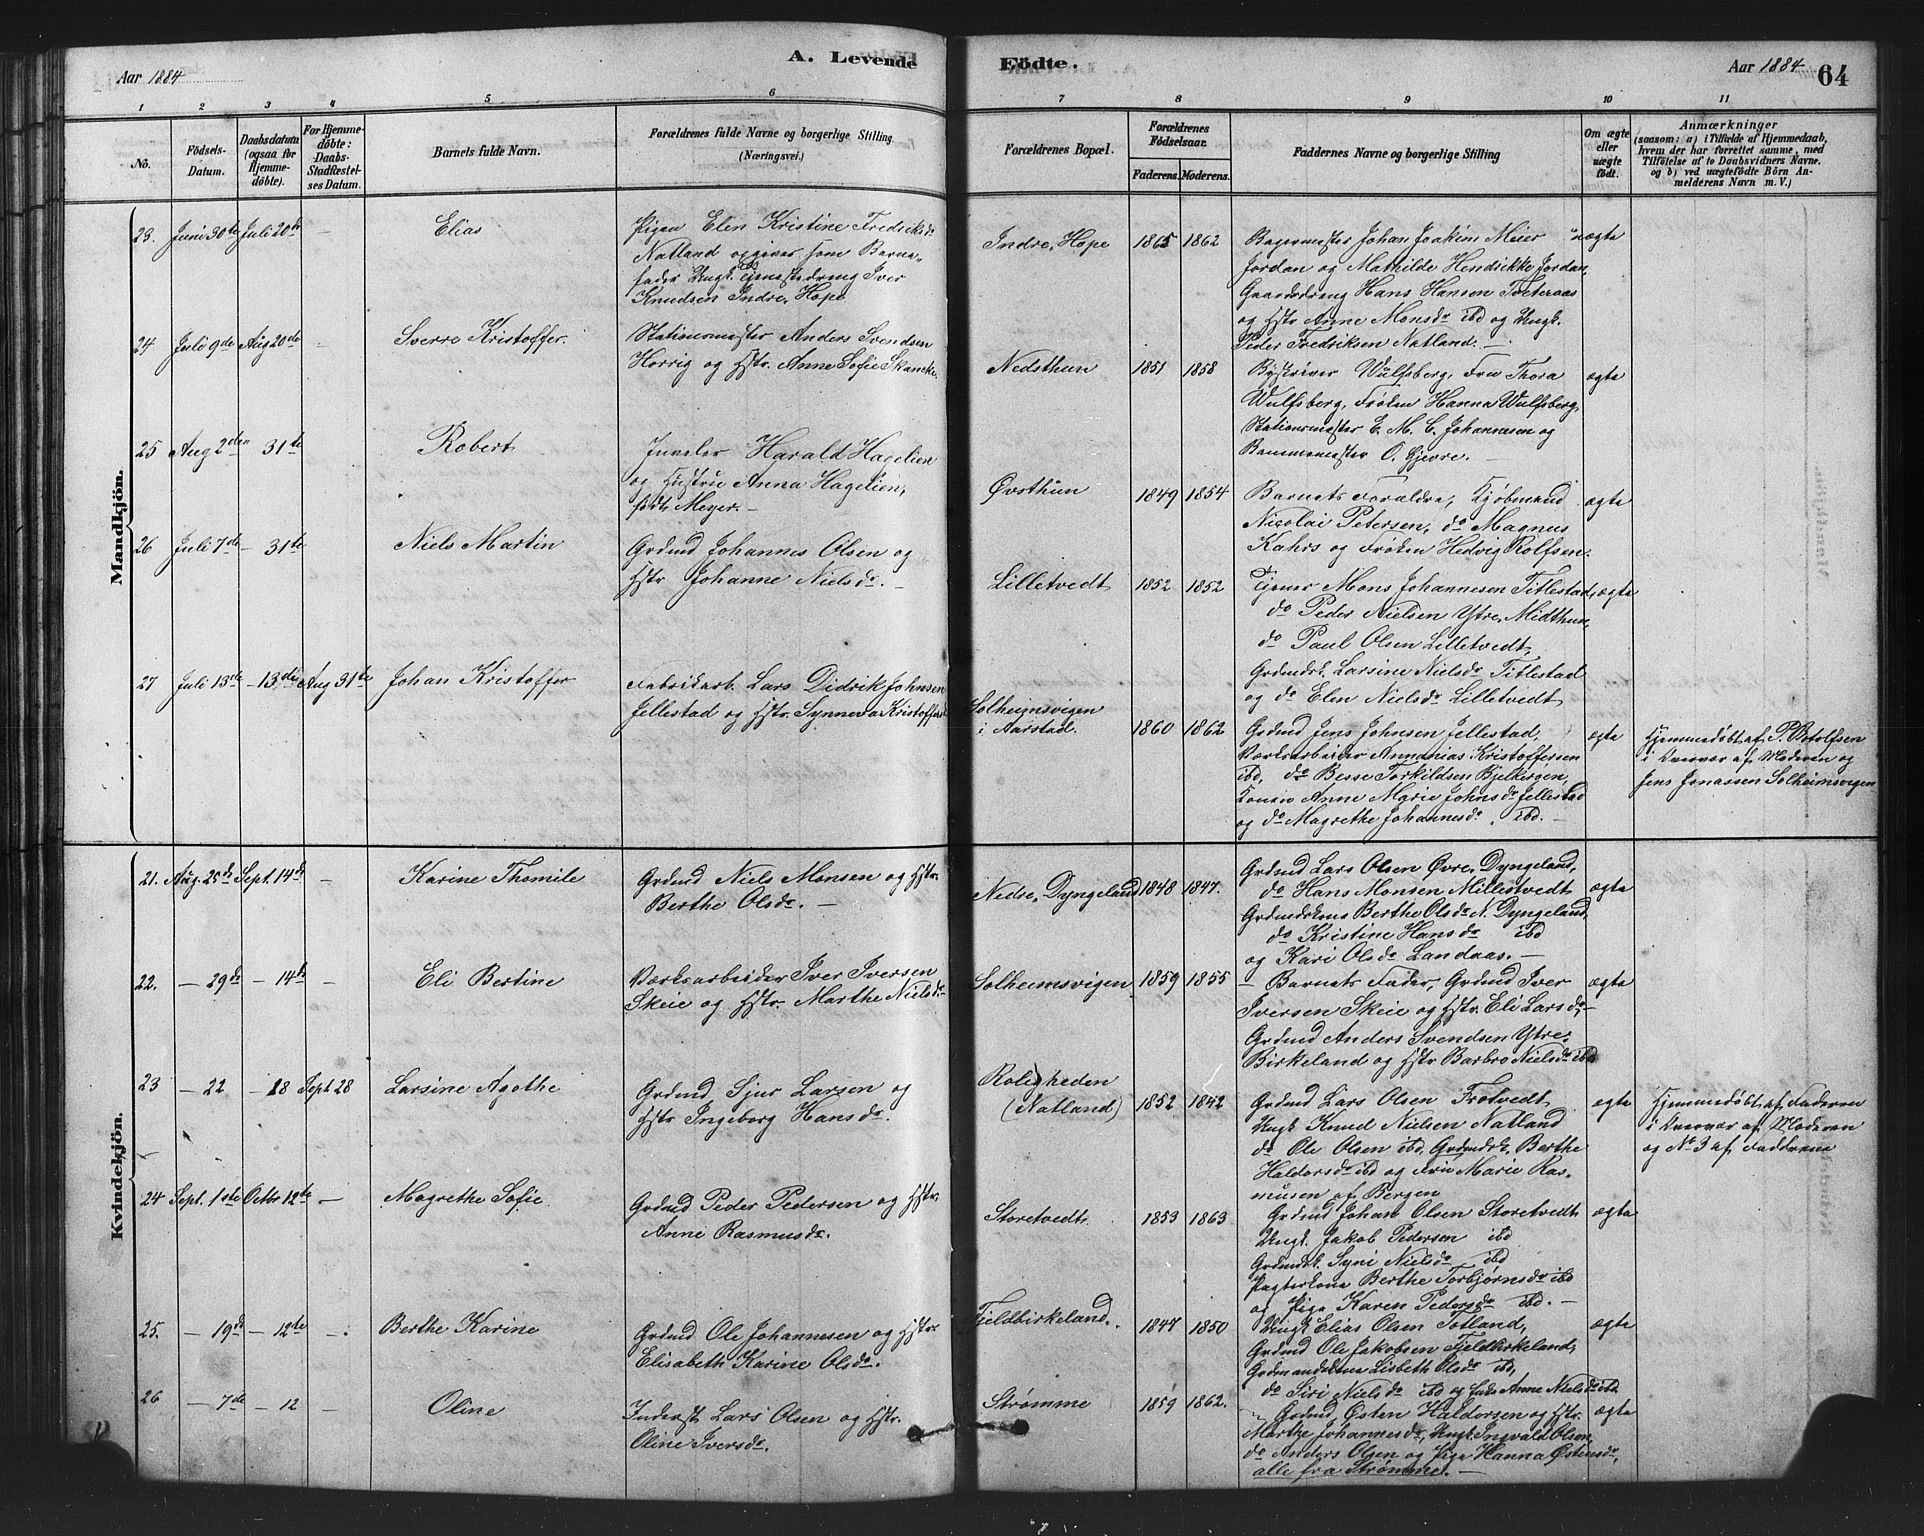 Aar 1884
A. Levende
Födte.
Aar 1884
64
1 2 3 4 5 6 7 8 9 10 11
No.
Födsels-Datum.
Daabsdatum (ogsaa for Hjemmedöbte).
For Hjemmedöbte: Daabs-Stadfæstelses Datum.
Barnets fulde Navn.
Forældrenes fulde Navne og borgerlige Stilling.
(Næringsvei.)
Forældrenes Bopæl.
Forældrenes Födselsaar.
Faderens. Moderens.
Faddernes Navne og borgerlige Stilling
Om ægte eller uægte födt.
Anmærkninger
(saasom: a) i Tilfælde af Hjemmedaab, hvem der har forrettet samme, med Tilföielse af to Daabsvidners Navne. og b) ved uægtefödte Börn Anmelderens Navn m. V.)
Mandkjön.
23. Juni 30te Juli 20de — Elias
Pigen Elen Kristine Fredriksdr
Natland opgiver som Barne-
fader Ungk. Tjenestedreng Iver
Knudsen Indre Hope
Indre, Hope 1865 1862
Bagermester Johan Joakim Meier
Jordan og Mathilde Hendrikke Jordan,
Gaardsdreng Hans Hansen Tveteraas
og Hstr Anne Monsdr ibd og Ungk.
Peder Fredriksen Natland. —
uægte
24 Juli 9de Aug 20de — Sverre Kristoffer.
Stationsmester Anders Svendsen
Horrig og Hstr. Anne Sofie Skancke.
Nedsthun 1851 1858
Byskriver Wulfsberg, Fru Thora
Wulfsberg, Frøken Hanna Wulfsberg,
Stationsmester E. M. C. Johannesen og
Banemester O. Gjevre. —
ægte
25 Aug 2den 31te Robert
Juveler Harald Hagelien
og Hustru Anna Hagelien,
født Meyer. —
Øvsthun 1849 1854
Barnets Forældre, Kjøbmand
Nicolai Petersen, do Magnus
Kahrs og Frøken Hedvig Rolfsen.
ægte
26 Juli 7de — 31te Niels Martin
Grdmd Johannes Olsen og
Hstr Johanne Nielsdr. —
Lilletvedt 1852 1852
Tjener Mons Johannesen Titlestad,
do Peder Nielsen Ytre, Midthun,
do Paul Olsen Lilletvedt,
Grdmdsk. Larsine Nielsdr Titlestad
og do Elen Nielsdr Lilletvedt
ægte
27 Juli 13de — 13de Aug 31te Johan Kristoffer
Fabrikarb. Lars Didrik Johnsen
Jellestad og Hstr. Synneva Kristoffersdr
Solheimsvigen
i Aarstad. 1860 1862
Grdmd Jens Johnsen Jellestad,
Værksarbeider Annanias Kristoffersen
ibd, do Besse Torkildsen Bjelkergen,
Konen Anne Marie Johnsdr Jellestad
og do Magrethe Johannesdr. ibd. —
ægte
Hjemmedøbt af P. Botolfsen
i Overvær af Moderen og
Jens Jonassen Solheimsvigen
Kvindekjön.
21. Aug. 25de Sept. 14de — Karine Thomile
Grdmd Niels Monsen og Hstr.
Berthe Olsdr. —
Nedre, Dyngeland 1848 1847.
Grdmd Lars Olsen Øvre, Dyngeland,
do Hans Monsen Millestvedt
Grdmdskone Berthe Olsdr N. Dyngeland,
do Kristine Hansdr ibd
og Kari Olsdr Landaas. —
ægte
22. — 29de — 14de — Eli Bertine
Værksarbeider Iver Iversen
Skeie og Hstr. Marthe Nielsdr
Solheimsvigen 1859 1855
— Barnets Fader, Grdmd Iver
Iversen Skeie og Hstr. Eli Larsdr, —
Grdmd Anders Svendsen Ytre,
Birkeland og Hstr Barbro Nielsdr ibd
ægte
23 — 22 — 18 Sept 28 Larsine Agathe
Grdmd Sjur Larsen og
Hstr Ingeborg Hansdr.
Roligheden
(Natland) 1852 1842
Grdmd Lars Olsen Frotvedt
Ungk Knud Nielsen Natland
do Ole Olsen ibd, Grdmdsk. Berthe
Haldorsdr ibd og Fru Marie Ras-
musen af Bergen
ægte
Hjemmedøbt af Faderen
i Overvær af Moderen
og No 3 af Fadderne
24 Sept. 1ste Octbr 12te — Magrethe Sofie
Grdmd Peder Pedersen og Hstr
Anne Rasmusdr.
Storetvedt. 1853 1863
Grdmd Johan Olsen Storetvedt
Ungk. Jakob Pedersen ibd
Grdmdsk. Syni Nielsdr ibd
Pagterkone Berthe Torbjørnsdr ibd
og Pige Karen Pedersdr ibd. —
ægte
25. — 19de — 12te — Berthe Karine
Grdmd Ole Johannesen og Hstr
Elisabeth Karine Olsdr.
Fjeldbirkeland. 1847 1850
Ungk Elias Olsen Totland,
Grdmd Ole Jakobsen Fjeldbirkeland,
Grdmandskone Lisbeth Olsdr ibd,
do Siri Nielsdr ibd og Anne Nielsdr ibd
ægte
26 — 7de — 12 — Oline
Inderst Lars Olsen og Hstr.
Oline Iversdr.
Strømme 1859 1862.
Grdmd Østen Haldorsen og Hstr.
Marthe Johannesdr, Ungk. Ingvald Olsen,
do Anders Olsen og Pige Hanna Østensdr,
alle fra Strømme. —
ægte